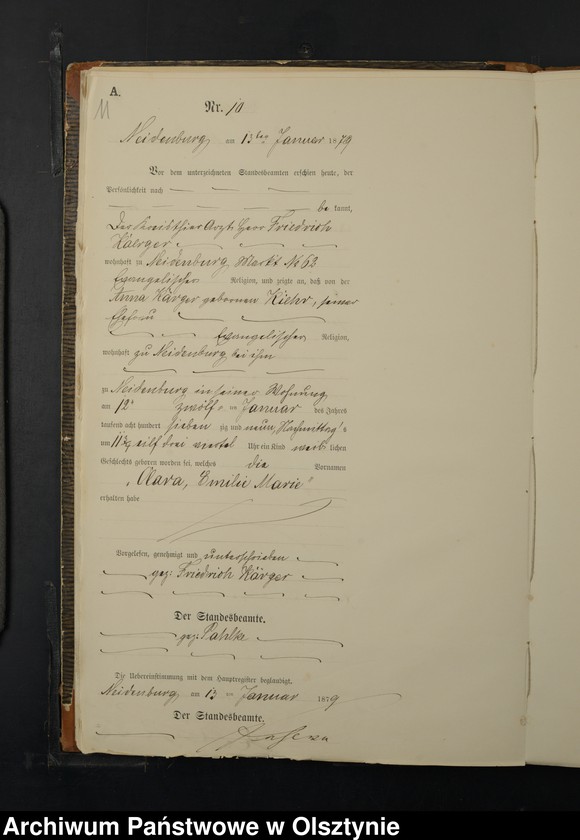 A.
11
Nr. 10
Neidenburg am 13ten Januar 1879
Vor dem unterzeichneten Standesbeamten erschien heute, der
Persönlichkeit nach
be kannt,
Der Kreisthier Arzt Herr Friedrich
Kärger
wohnhaft zu Neidenburg Markt No 62
Evangelischer Religion, und zeigte an, daß von der
Anna Kärger gebornen Kiehr, seiner
Ehefrau
Evangelischer Religion,
wohnhaft zu Neidenburg bei ihm
zu Neidenburg in seiner Wohnung
am 12ten zwölften Januar des Jahres
tausend acht hundert sieben zig und neun, Nachmittags
um 11¾ eilf drei viertel Uhr ein Kind weib lichen
Geschlechts geboren worden sei, welches die Vornamen
„Clara, Emilie Marie“
erhalten habe
Vorgelesen, genehmigt und unterschrieben
gez: Friedrich Kärger
Der Standesbeamte.
gez: Pahlke
Die Uebereinstimmung mit dem Hauptregister beglaubigt.
Neidenburg am 13ten Januar 1879
Der Standesbeamte.
Archiwum Państwowe w Olsztynie